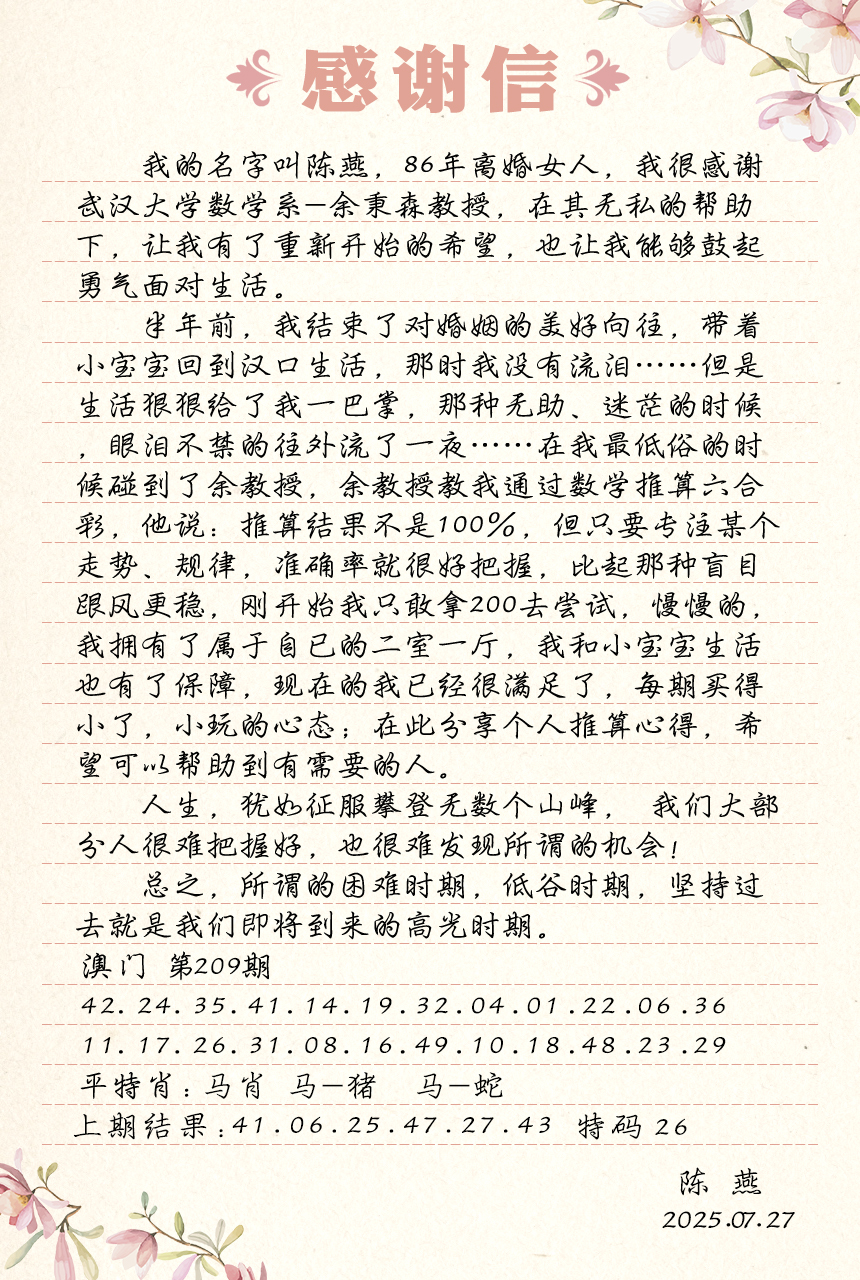 感谢信
我的名字叫陈燕，86年离婚女人，我很感谢
武汉大学数学系—余秉森教授，在其无私的帮助
下，让我有了重新开始的希望，也让我能够鼓起
勇气面对生活。
半年前，我结束了对婚姻的美好向往，带着
小宝宝回到汉口生活，那时我没有流泪……但是
生活狠狠给了我一巴掌，那种无助、迷茫的时候
，眼泪不禁的往外流了一夜……在我最低俗的时
候碰到了余教授，余教授教我通过数学推算六合
彩，他说：推算结果不是100%，但只要专注某个
走势、规律，准确率就很好把握，比起那种盲目
跟风更稳，刚开始我只敢拿200去尝试，慢慢的，
我拥有了属于自已的二室一厅，我和小宝宝生活
也有了保障，现在的我已经很满足了，每期买得
小了，小玩的心态；在此分享个人推算心得，希
望可以帮助到有需要的人。
人生，犹如征服攀登无数个山峰， 我们大部
分人很难把握好，也很难发现所谓的机会！
总之，所谓的困难时期，低谷时期，坚持过
去就是我们即将到来的高光时期。
澳门 第209期
42.24.35.41.14.19.32.04.01.22.06.36
11.17.26.31.08.16.49.10.18.48.23.29
平特肖：马肖 马—猪 马—蛇
上期结果：41.06.25.47.27.43 特码 26
陈 燕
2025.07.27